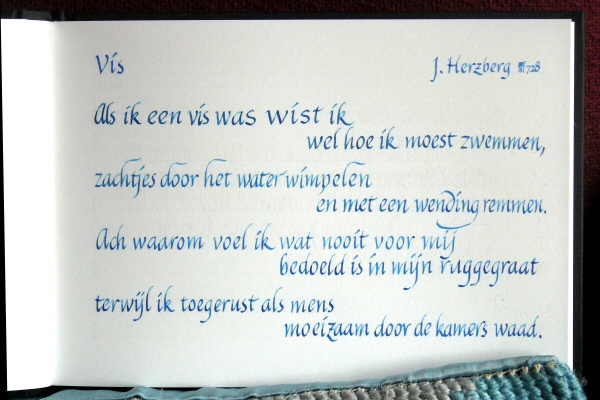 Vis
J. Herzberg
Als ik een vis was wist ik
wel hoe ik moest zwemmen,
zachtjes door het water wimpelen
en met een wending remmen.
Ach waarom voel ik wat nooit voor mij
bedoeld is in mijn ruggegraat
terwijl ik toegerust als mens
moeizaam door de kamers waad.